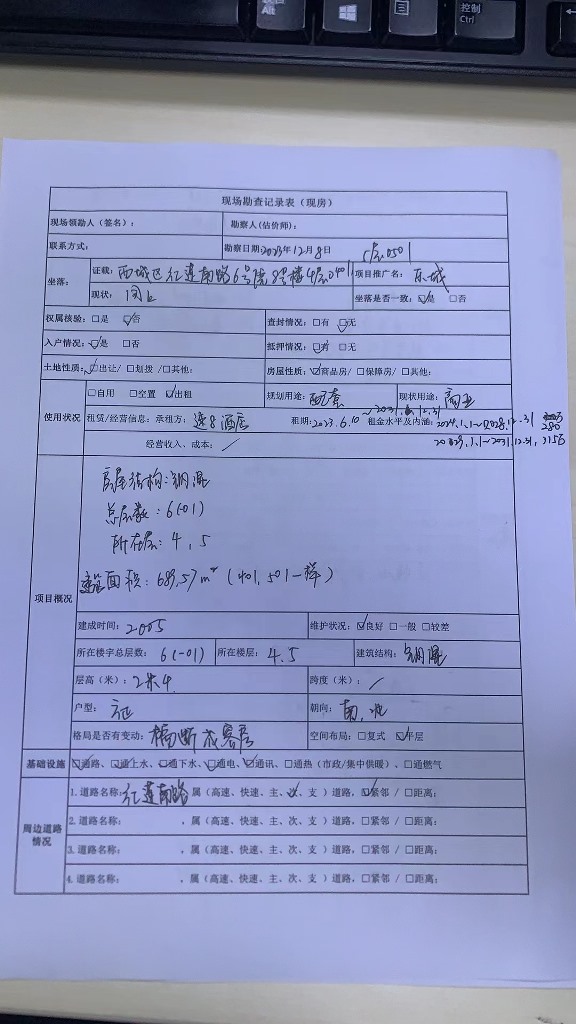 Alt
控制
Ctrl
现场勘查记录表（现房）
现场领勘人（签名）：
勘察人(估价师)：
联系方式：
勘察日期:2023年12月8日
5层0501
坐落：
证载：西城区红莲南路6号院8号楼4层0401
项目推广名：
现状：同上
坐落是否一致：☑是 □否
权属核验：□是 ☑否
查封情况：□有 ☑无
入户情况：☑是 □否
抵押情况：☑有 □无
土地性质：☑出让/ □划拨 /□其他：
房屋性质：☑商品房/ □保障房/ □其他：
使用状况
□自用 □空置 ☑出租
规划用途：配套
现状用途：商业
租赁/经营信息：承租方：速8酒店
租期：2023.6.10～2031.12.31
租金水平及内涵：2024.1.1～2028.12.31 280
2029.1.1～2031.12.31,
经营收入、成本：/
项目概况
房屋结构：钢混
总层数：6(-01)
所在层：4，5
建筑面积：689.57m² (401,501一样)
建成时间：2005
维护状况：☑良好 □一般 □较差
所在楼宇总层数：6(-01)
所在楼层：4.5
建筑结构：钢混
层高（米）：2米4
跨度（米）：/
户型：
朝向：南，北
格局是否有变动：隔断成客房
空间布局：□复式 ☑平层
基础设施
☑通路、☑通上水、☑通下水、☑通电、☑通讯、□通热（市政/集中供暖）、□通燃气
周边道路情况
1.道路名称：红莲南路，属（高速、快速、主、次、支）道路，☑紧邻 / □距离：
2.道路名称： ，属（高速、快速、主、次、支 ）道路，□紧邻 / □距离：
3.道路名称： ，属（高速、快速、主、次、支 ）道路，□紧邻 / □距离：
4.道路名称： ，属（高速、快速、主、次、支 ）道路，□紧邻 / □距离：